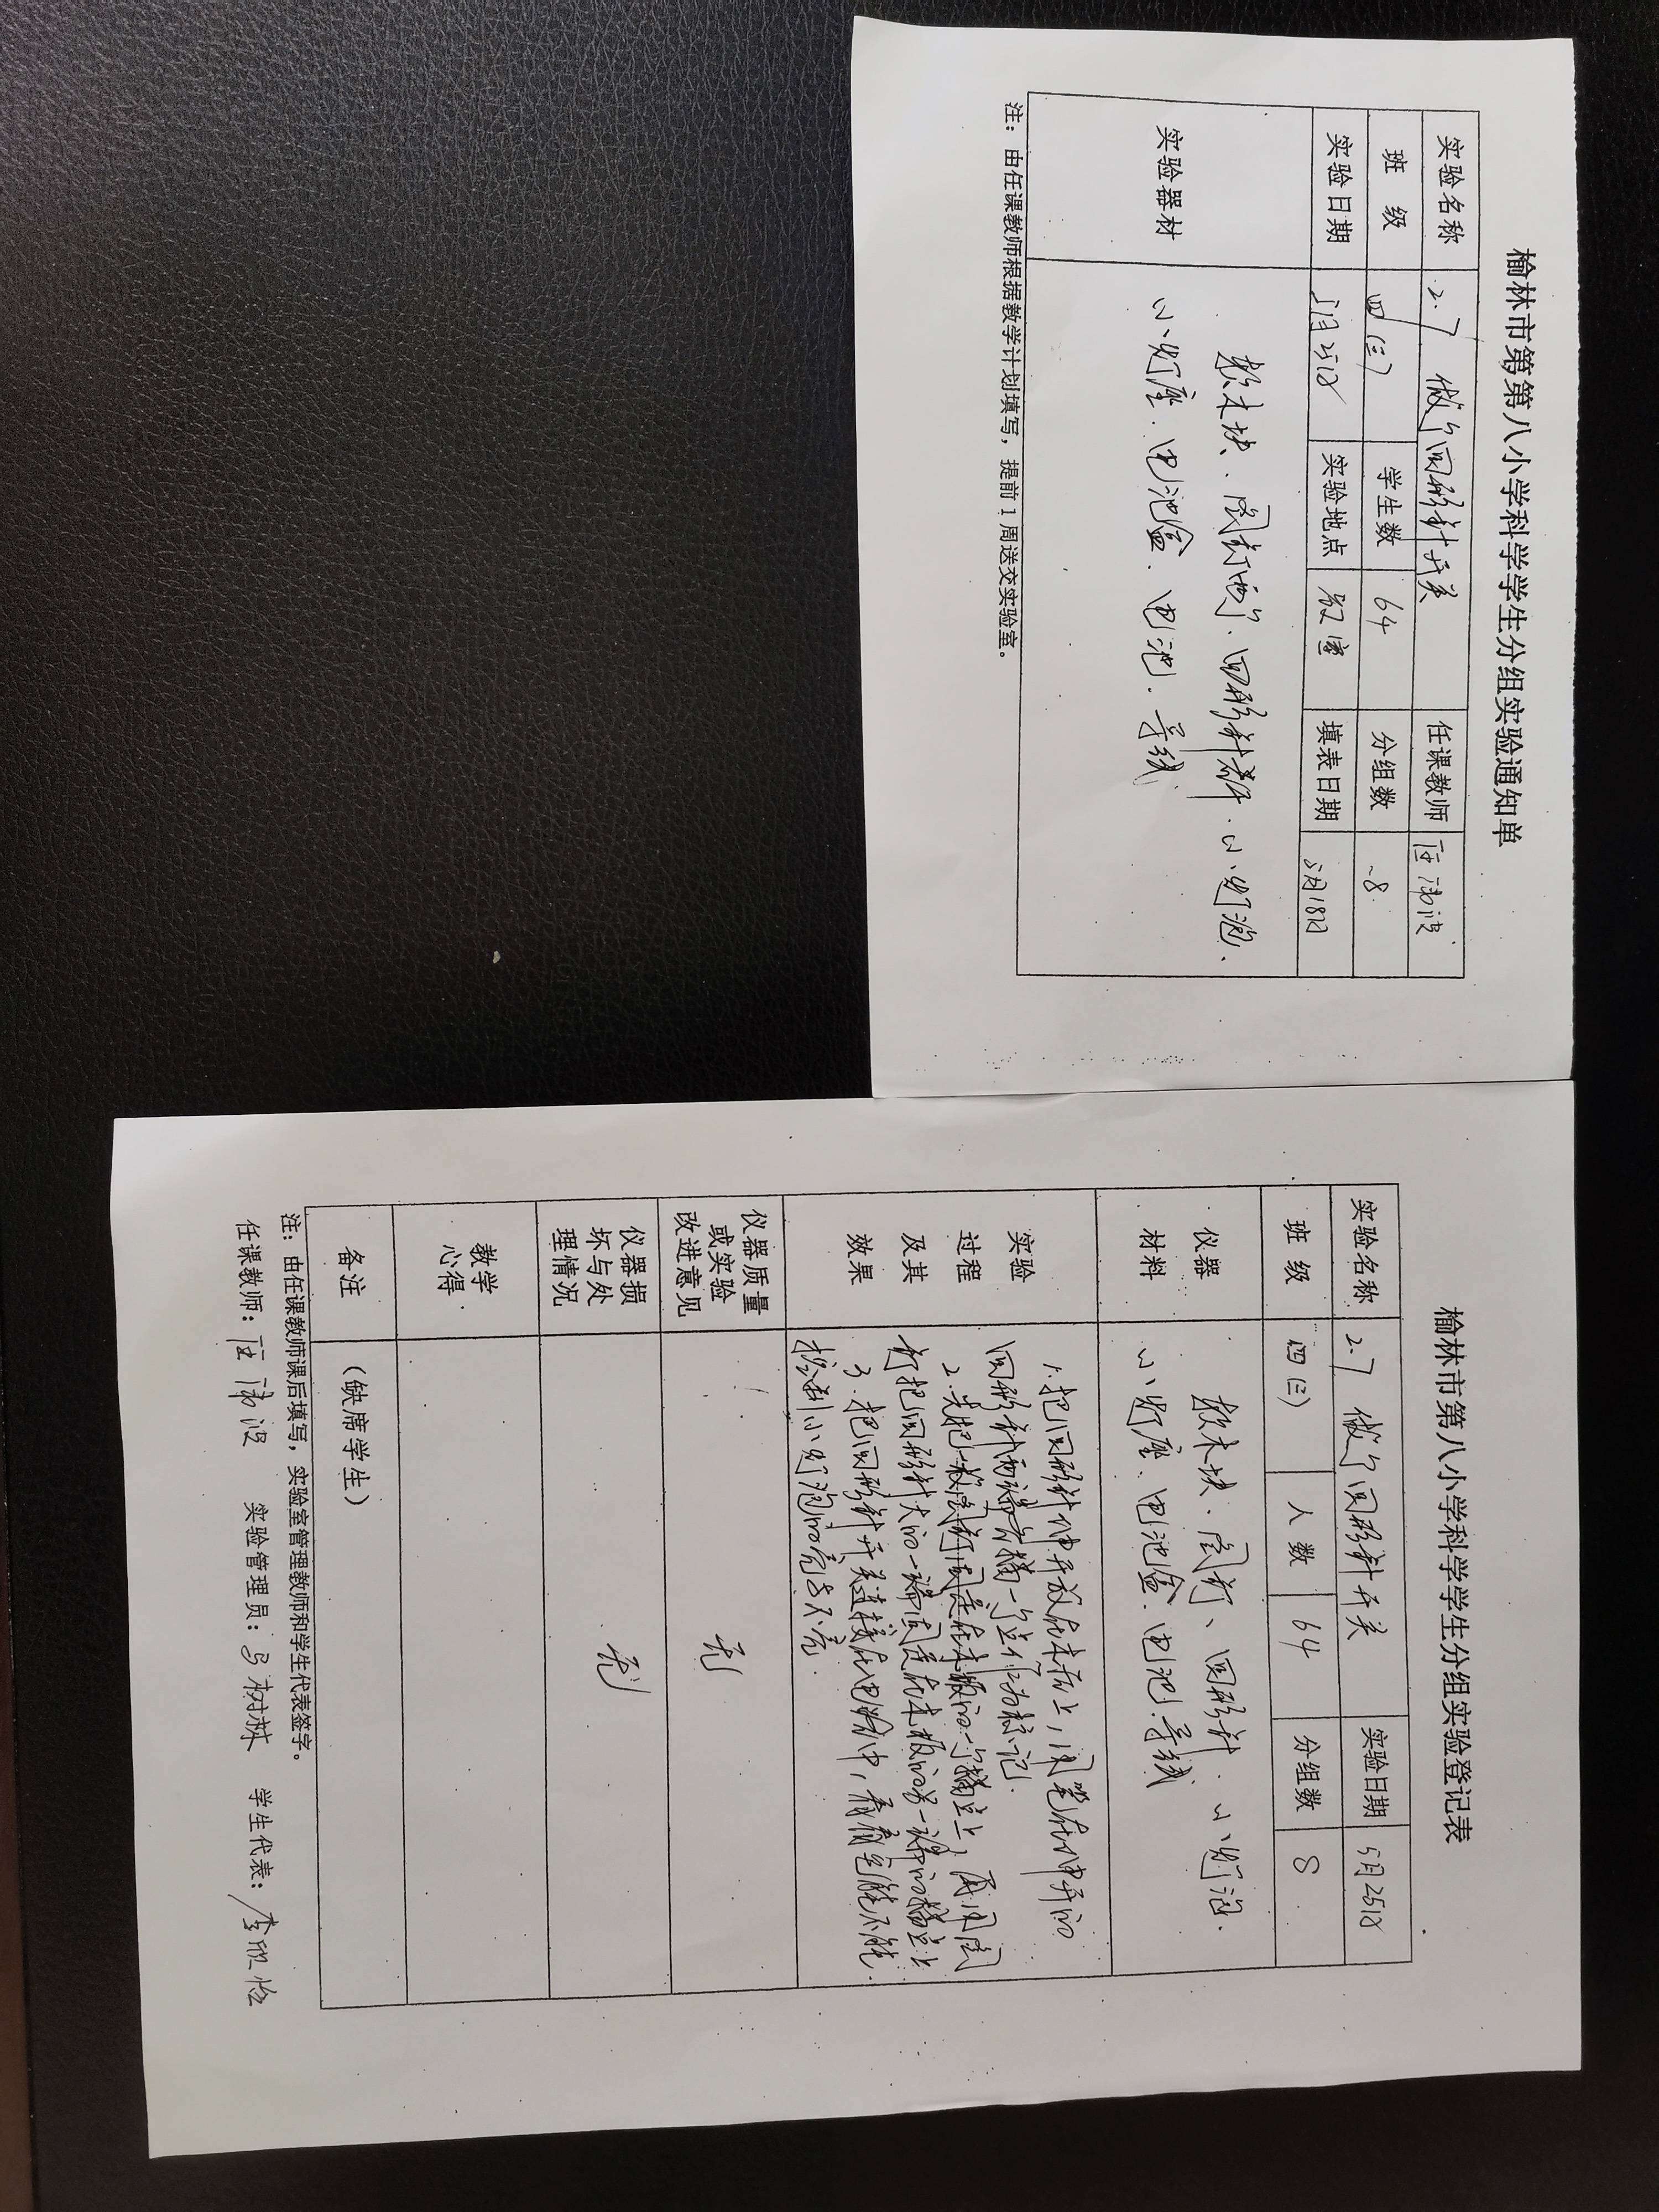 榆林市第第八小学科学学生分组实验通知单
实验名称 2.7 做个回形针开关 任课教师
班 级 四(三) 学生数 64 分组数 8
实验日期 5月25日 实验地点 教室 填表日期 5月18日
实验器材 软木块、图钉两个、回形针、小灯泡、
小灯座、电池盒、电池、导线
注：由任课教师根据教学计划填写，提前1周送交实验室。
榆林市第八小学科学学生分组实验登记表
实验名称 2.7 做个回形针开关 实验日期 5月25日
班 级 四(三) 人 数 64 分组数 8
仪器
材料
软木块、图钉、回形针、小灯泡、
小灯座、电池盒、电池、导线
实验
过程
及其
效果
1.把回形针伸开放在木板上，用笔在伸开的
回形针两端各描一个点作为标记.
2.先把一枚图钉固定在木板的一个描点上，再用图
钉把回形针大的一端固定在木板的另一端的描点上
3.把回形针开关连接在电路中，看看它能不能
控制小灯泡的亮与不亮.
仪器质量
或实验
改进意见
无
仪器损
坏与处
理情况
无
教学
心得
备注 （缺席学生）
注：由任课教师课后填写，实验室管理教师和学生代表签字。
任课教师： 实验管理员：马树林 学生代表：李欣怡